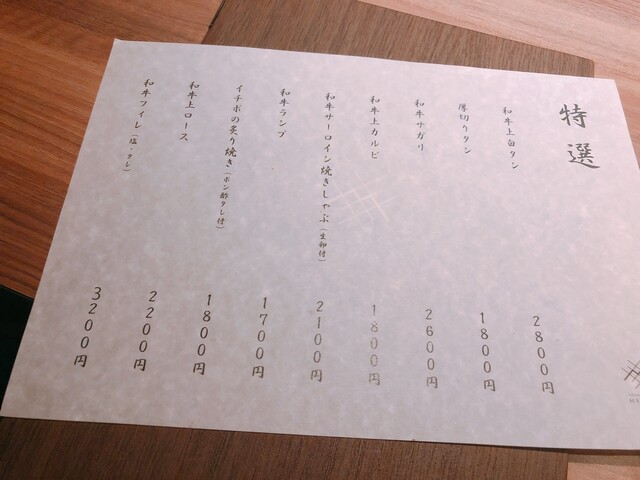 特選
和牛上白タン 2800円
厚切りタン 1800円
和牛サガリ 2600円
和牛上カルビ 1800円
和牛サーロイン焼きしゃぶ(生卵付) 2100円
和牛ランプ 1700円
イチボの炙り焼き(ポン酢タレ付) 1800円
和牛上ロース 2200円
和牛フィレ(塩・タレ) 3200円